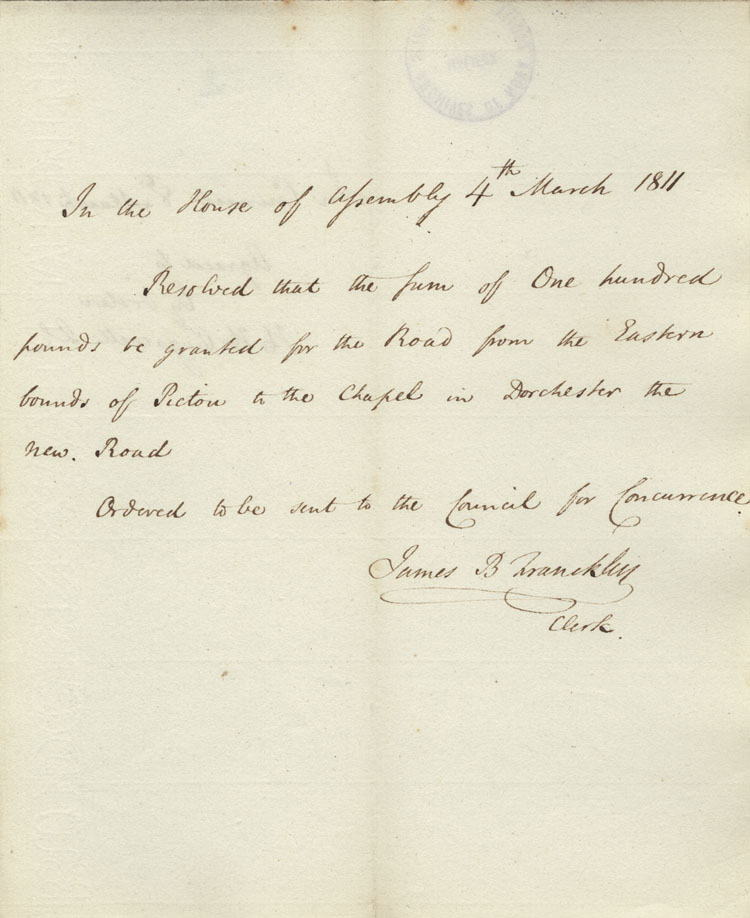 In the House of Assembly 4th March 1811
Resolved that the sum of One hundred
pounds be granted for the Road from the Eastern
bounds of Pictou to the Chapel in Dorchester the
new. Road
Ordered to be sent to the Council for Concurrence.
James B Franckling
Clerk.